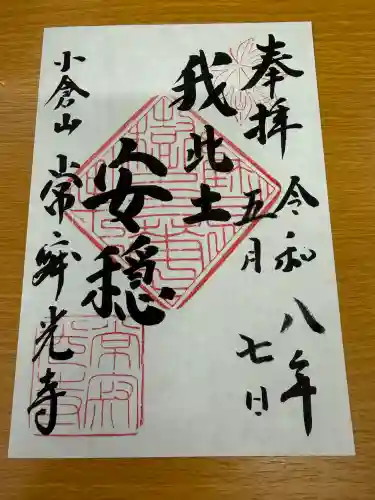 奉拝
令和八年
五月七日
我此土
安穏
小倉山
常寂光寺